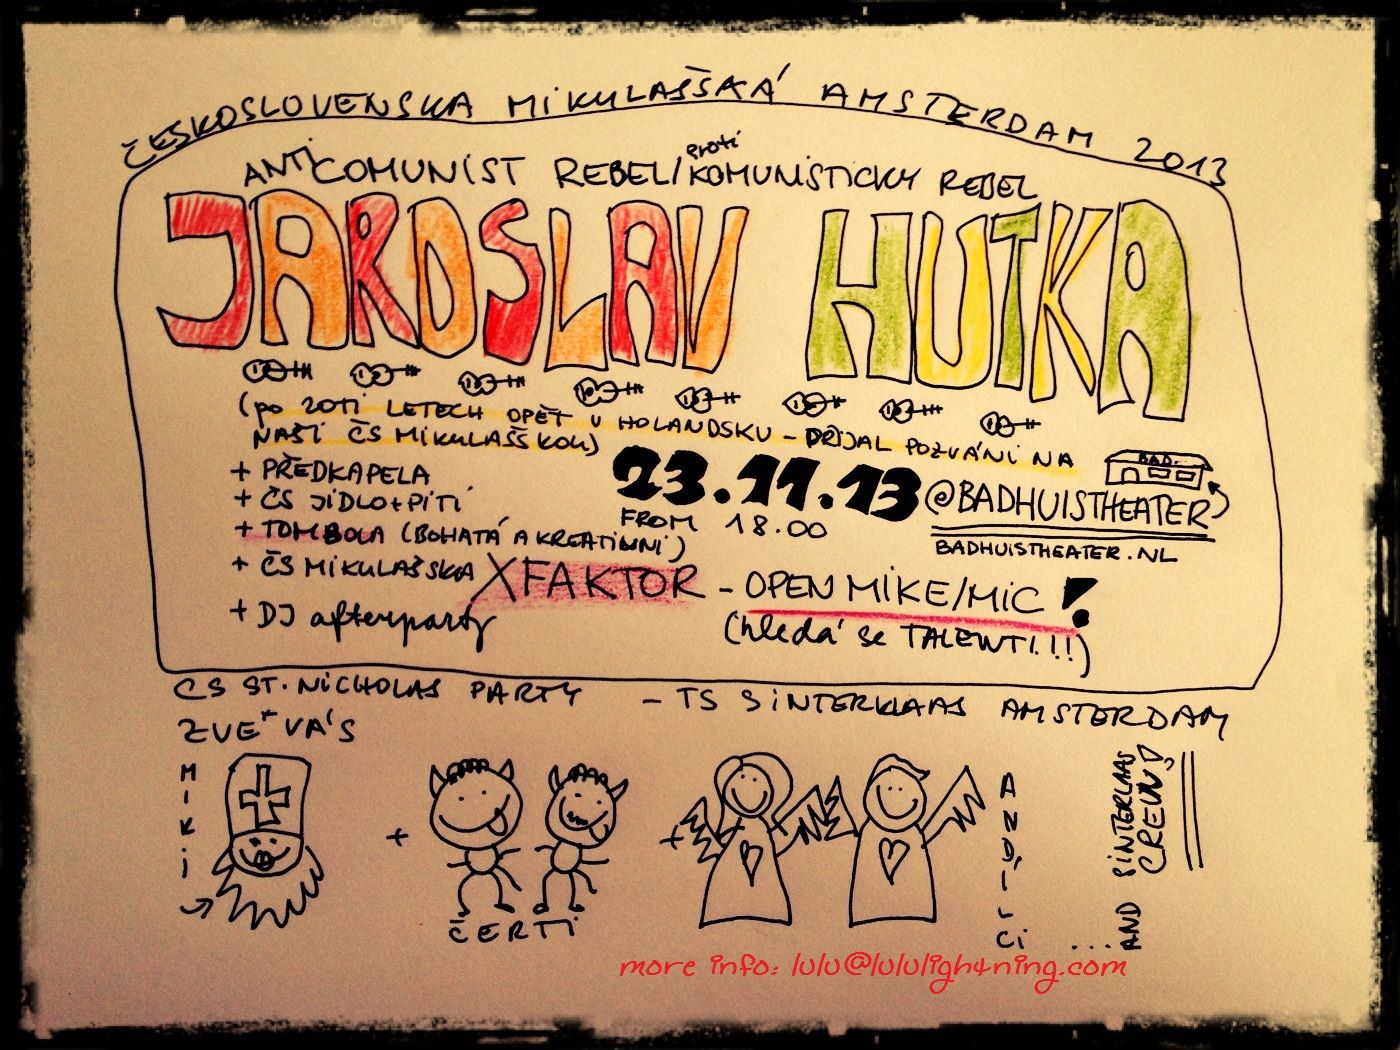 ČESKOSLOVENSKA MIKULAŠŠKÁ AMSTERDAM 2013
ANTICOMUNIST REBEL/protiKOMUNISTICKY REBEL
JAROSLAV HUTKA
(po 20TI LETECH OPĚT V HOLANDSKU - PŘIJAL POZVÁNI NA
NAŠI ČS MIKULAŠŠKOU)
+ PŘEDKAPELA
+ ČS JIDLO+PITI
+ TOMBOLA (BOHATÁ A KREATIVNI)
+ ČS MIKULAŠSKA XFAKTOR - OPEN MIKE/MIC !
(hledá se TALENT!!!)
+ DJ afterparty
23.11.13
FROM 18.00
BAD.
@BADHUISTHEATER
BADHUISTHEATER.NL
CS ST. NICHOLAS PARTY - TS SINTERKLAAS AMSTERDAM
ZVE + VÁS
MIKI
+
ČERTI
+
... AND SINTERKLAAS
CREW!
more info: lulu@lululigh4ning.com